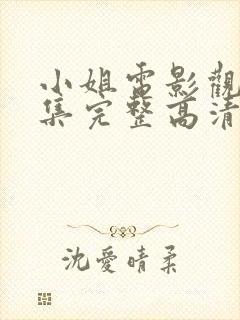 小姐電影觀
集完整高清
沈愛晴柔